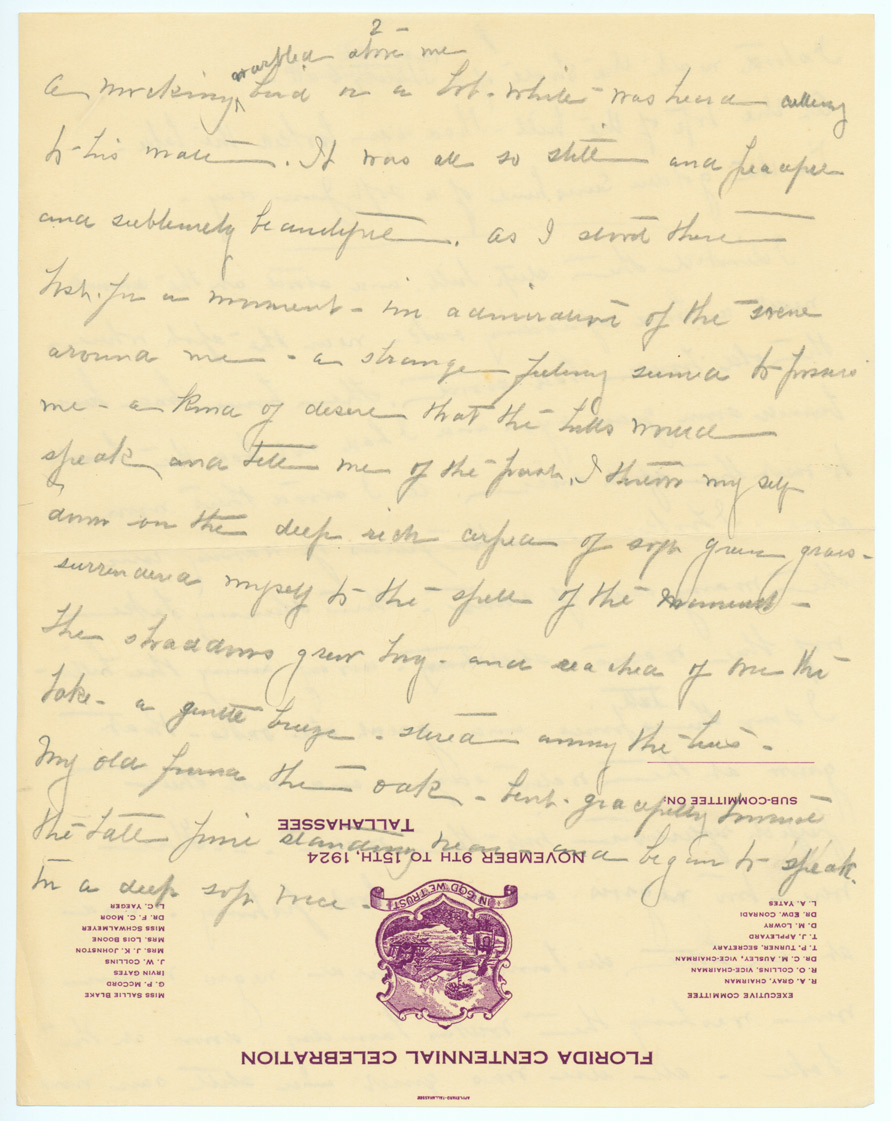 2-
warbled above me
A mocking bird or a bob-white was heard calling
to his mate. It was all so still and peaceful
and sublimely beautiful. As I stood there
lost for a moment - in admiration of the scene
around me - a strange feeling seemed to possess
me - a kind of desire that the hills would
speak and tell me of the past. I threw my self
down on the deep rich carpet of soft green grass -
surrendered myself to the spell of the moment -
The shaddows grew long - and reached out over the
lake - a gentle breeze - stired among the trees -
My old friend the oak - bent gracefully toward
the tall pine standing near - and began to speak
in a deep soft voice -
SUB-COMMITTEE ON:
TALLAHASSEE
NOVEMBER 9TH TO 15TH, 1924
IN GOD WE TRUST
L. C. YAEGER
DR. F. C. MOOR
MISS SCHWALMEYER
MRS. LOIS BOONE
MRS. J. K. JOHNSTON
J. W. COLLINS
IRVIN GATES
G. P. MCCORD
MISS SALLIE BLAKE
L. A. YATES
DR. EDW. CONRADI
D. M. LOWRY
T. J. APPLEYARD
T. P. TURNER, SECRETARY
DR. C. M. AUSLEY, VICE-CHAIRMAN
R. O. COLLINS, VICE-CHAIRMAN
R. A. GRAY, CHAIRMAN
EXECUTIVE COMMITTEE
FLORIDA CENTENNIAL CELEBRATION
APPLEYARD-TALLAHASSEE